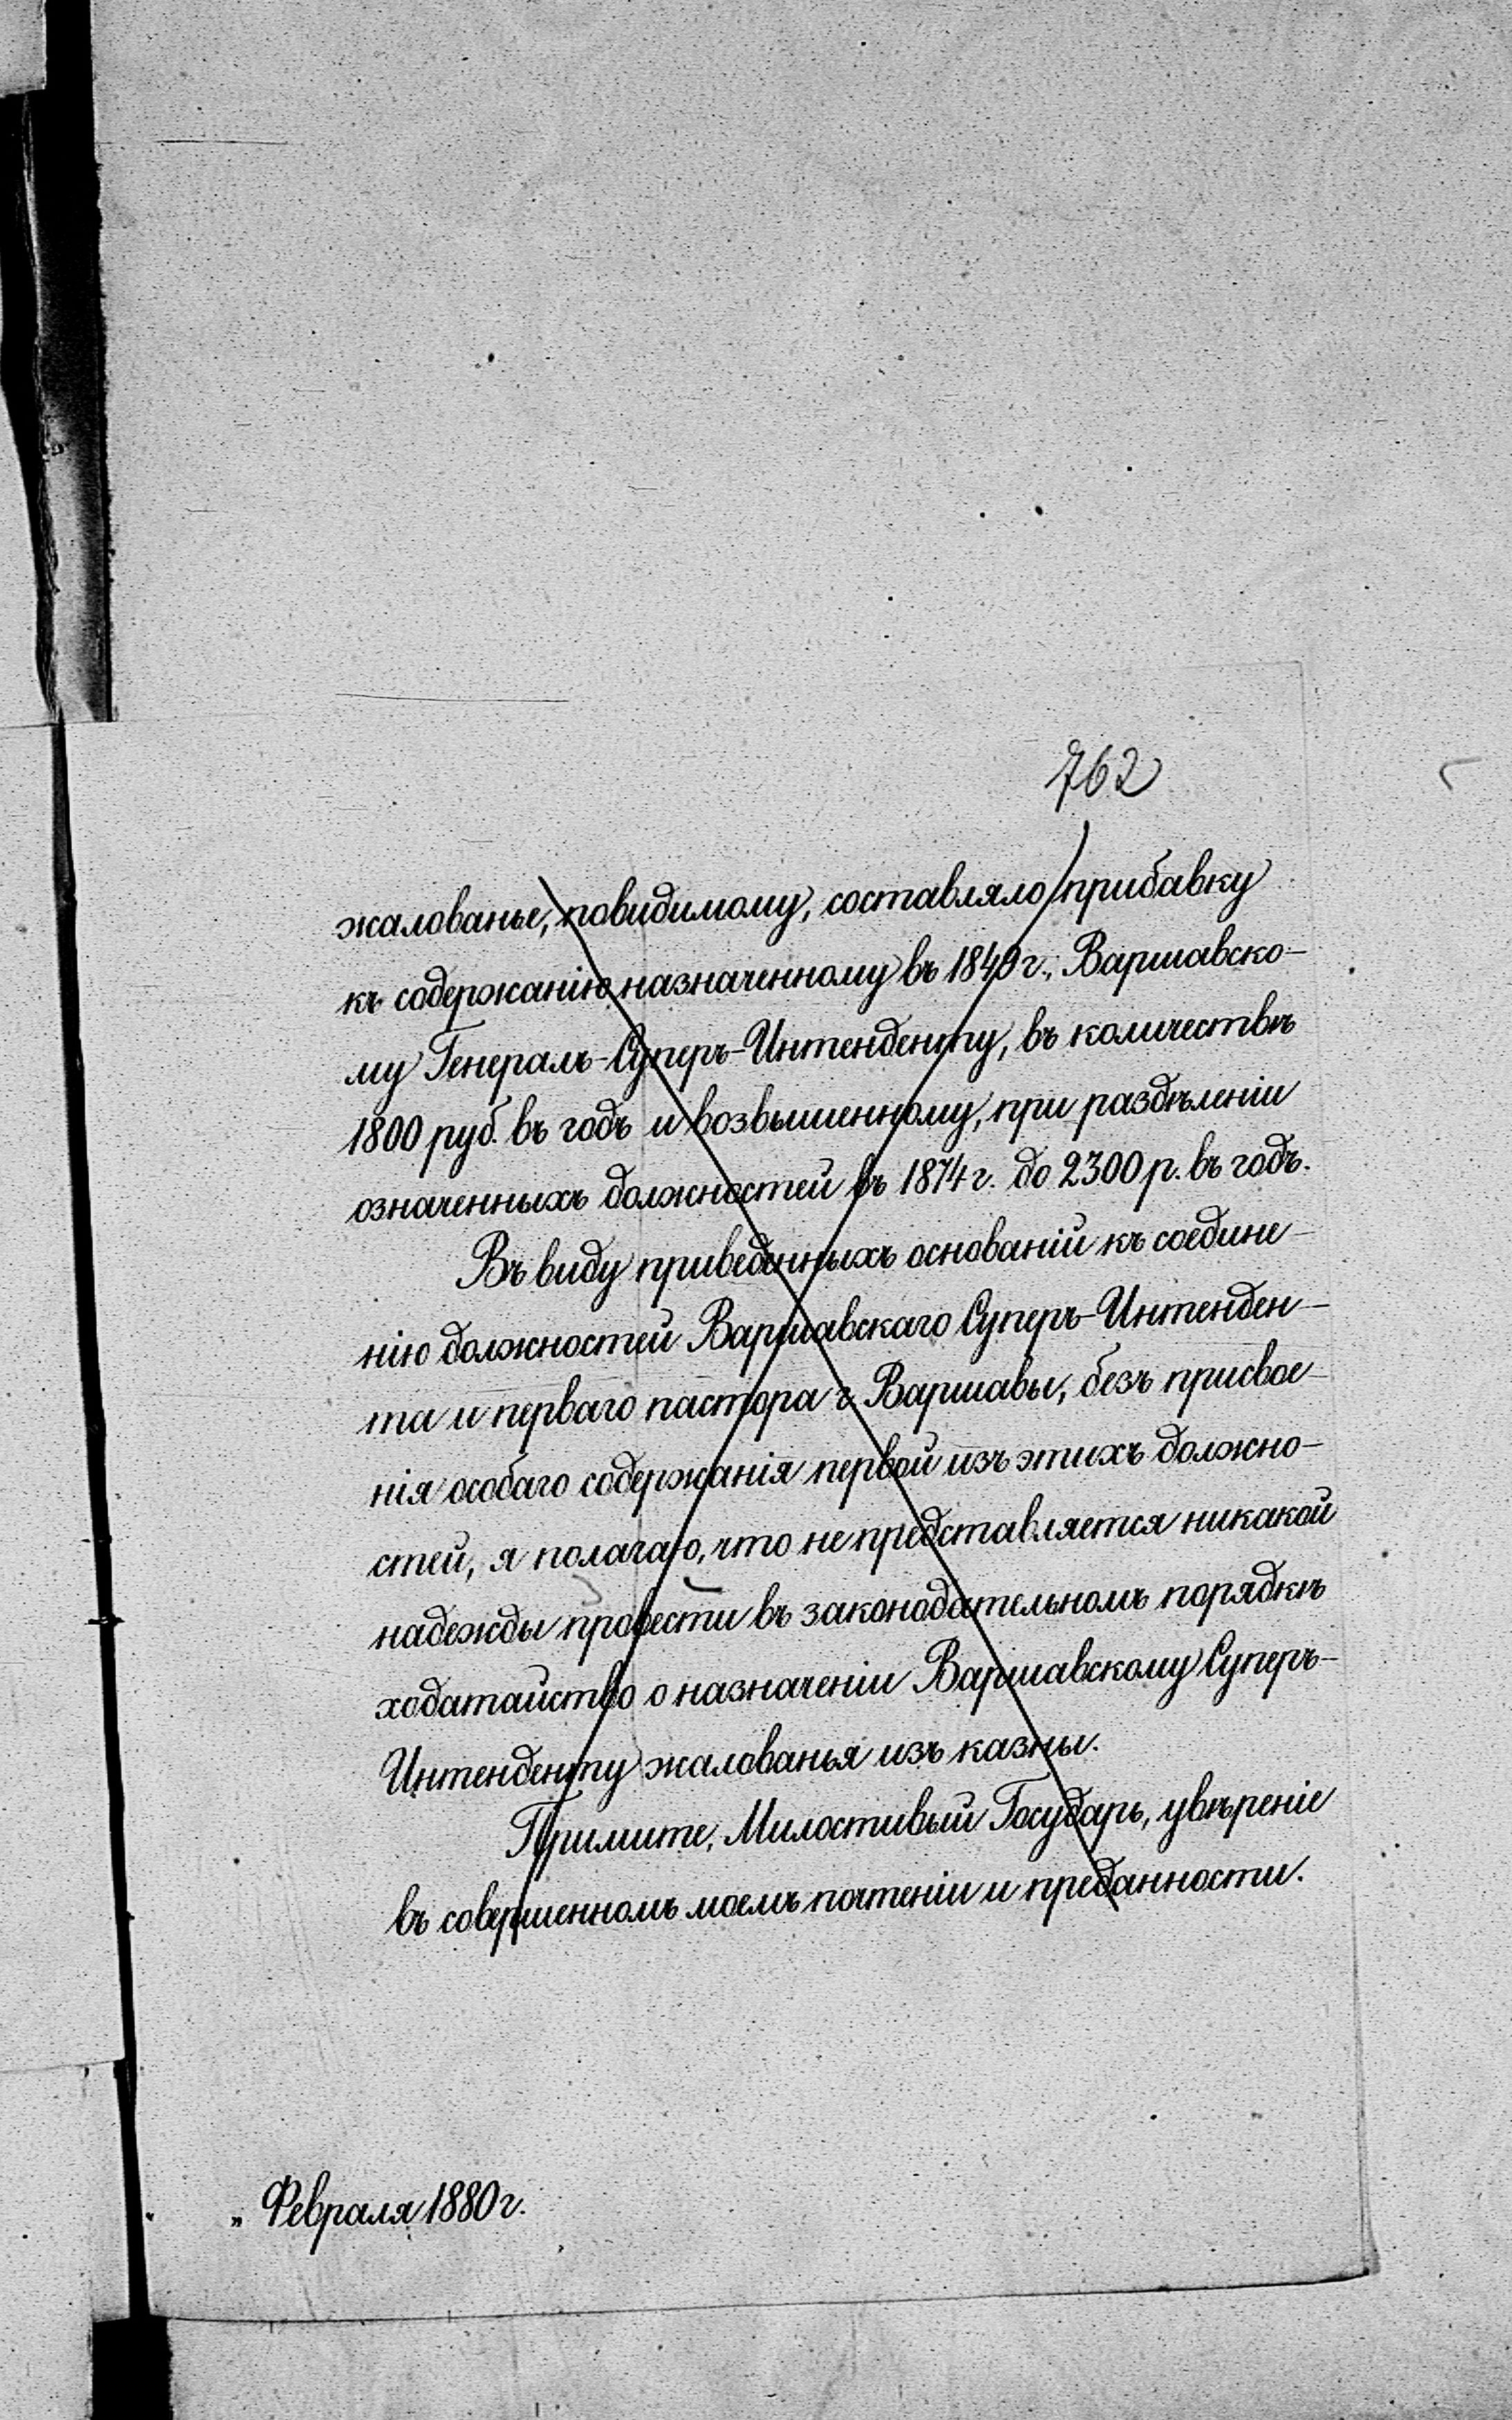 762
жалованье, повидимому, составляло прибавку
къ содержанію назначенному въ 1849 г., Варшавско-
му Генералъ-Суперъ-Интенденту, въ количествѣ
1800 руб. въ годъ и возвышенному, при раздѣленіи
означенныхъ должностей въ 1874 г. до 2300 р. въ годъ.
Въ виду приведенныхъ основаній къ соедине-
нію должностей Варшавскаго Суперъ-Интенден-
та и перваго пастора г. Варшавы, безъ присвое-
нія особаго содержанія первой изъ этихъ должно-
стей, я полагаю, что не представляется никакой
надежды провести въ законодательномъ порядкѣ
ходатайство о назначеніи Варшавскому Суперъ-
Интенденту жалованья изъ казны.
Примите, Милостивый Государь, увѣреніе
въ совершенномъ моемъ почтеніи и преданности.
" " Февраля 1880 г.